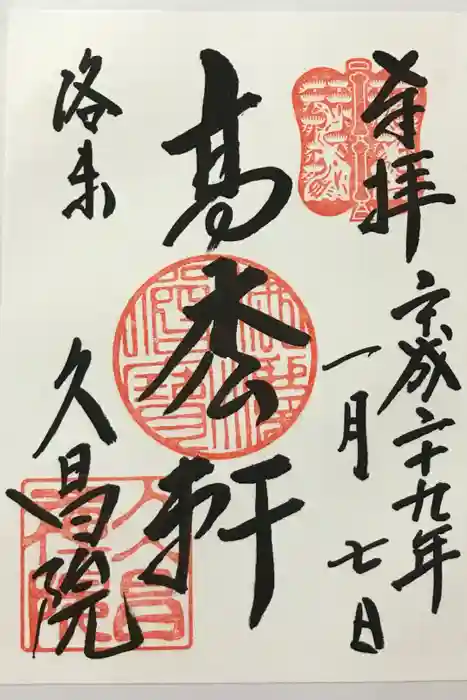 奉拝
平成二十九年
一月七日
高松軒
洛東
久昌院